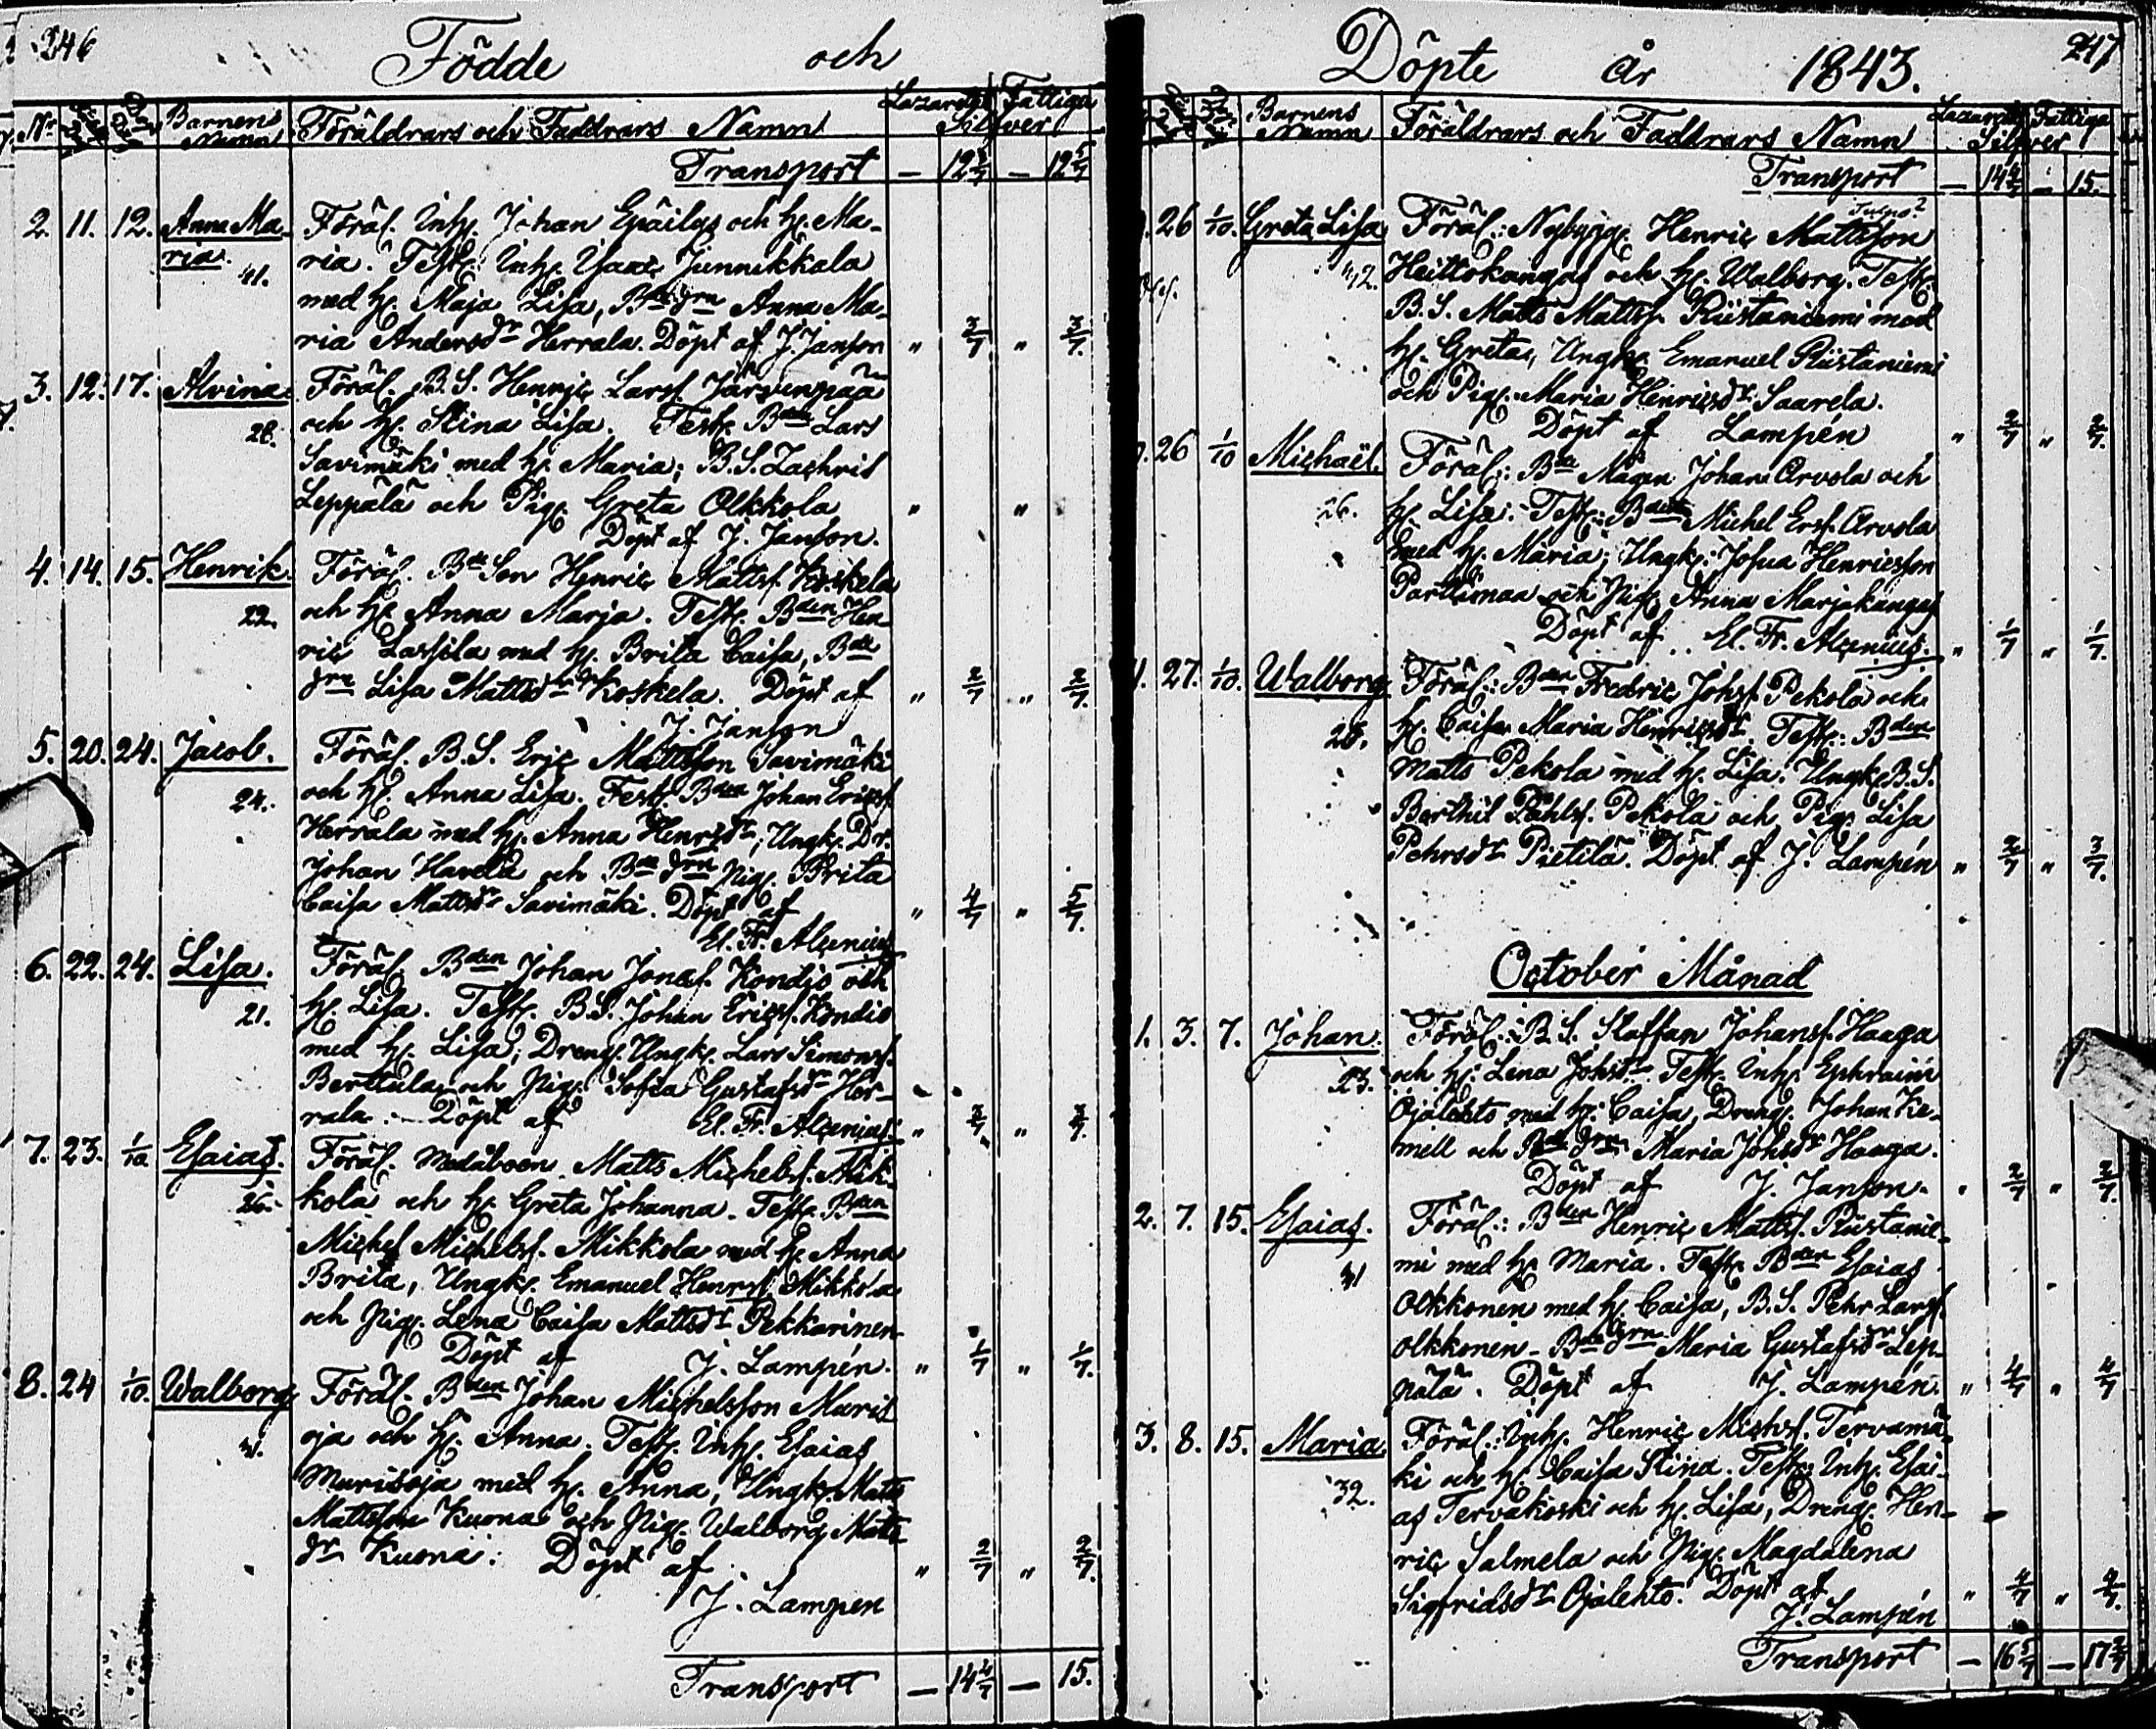 246
Födde och
No Barnens Namn Föräldrars och Faddrars Namn Lazarettet Fattiga
Silfver
Transport — 12 5/7 — 12 5/7
2. 11. 12. Anna Ma- Föräl. Inh. Johan och H. Ma-
ria. ria. Test. Inh. Isaac Junnikkala
41. med H. Maja Lisa, Bde drn Anna Ma-
ria Andersdr Herrala. Döpt af J. Janson " 3/7 " 3/7.
3. 12. 17. Alvina. Föräl. B.S. Henric Larss. Järvenpää
28. och H. Stina Lisa. Test. Bden Lars
Savimäki med H. Maria; B.S. Zachris
Leppälä och Pig. Greta Olkkola " "
Döpt af J. Janson.
4. 14. 15. Henrik. Föräl. Bde Son Henric Matts. Koskela
22. och H. Anna Maria. Test. Bden Hen-
ric Lassila med H. Brita Caisa, Bde
drn Lisa Mattsdr Koskela. Döpt af " 2/7 " 2/7.
J. Janson
5. 20. 24. Jacob. Föräl. B.S. Eric Mattsson Savimäki
24. och H. Anna Lisa. Test. Bden Johan Ericss.
Herrala med H. Anna Henrsdr, Ungk. Dr.
Johan Havela och Bde drn Pig. Brita
Caisa Mattsdr Savimäki. Döpt af " 4/7 " 5/7.
El. Fr. Alcenius
6. 22. 24. Lisa. Föräl. Bden Johan Jonas. Kondio och
21. H. Lisa. Test. B.S. Johan Ericss. Kondio
med H. Lisa; Dreng. Ungk. Lars Simonss.
Berttula och Pig. Sofia Gustafsdr Her-
rala. Döpt af El. Fr. Alcenius. " "
7. 23. 1/10 Esaias. Föräl. Medåboen Matts Michelss. Mik-
26. kola och H. Greta Johanna. Test. Bden
Michel Michelss. Mikkola med H. Anna
Brita, Ungk. Emanuel Henrss. Mikkola
och Pig. Lena Caisa Mattsdr Pekkarinen.
Döpt af J. Lampén. " 1/7 " 1/7.
8. 24 1/10. Walborg Föräl. Bden Johan Michelsson Muris
41. oja och H. Anna. Test. Inh. Esaias
Murisoja med H. Anna, Ungk. Matts
Mattsson Kuona och Pig. Walborg Matts
dr Kuona. Döpt af " 2/7 " 2/7.
J. Lampen
Transport — 14 4/7 — 15.
Döpte år 1843. 247
Barnens Namn Föräldrars och Faddrars Namn Lazarettet Fattiga
Silfver
Transport — 14 4/7 — 15.
26 1/10. Greta Lisa Föräl.: Nybygg. Henric Mattsson
42. Heittokangas och H. Walborg. Test.
B.S. Matts Matts. Riistaniemi med
H. Greta, Ungk. Emanuel Riistaniemi
och Pig. Maria Henricsdr Saarela.
Döpt af Lampén " 2/7 " 2/7.
26 1/10 Michaël. Föräl.: Bde Mågen Johan Arvola och
26. H. Lisa. Test.: Bden Michel Erss. Arvola
med H. Maria; Ungk. Josua Henricsson
Parttimaa och Pig. Anna Marjakangas
Döpt af El. Fr. Alcenius. " 1/7 " 1/7.
27. 1/10. Walborg Föräl.: Bden Fredric Johss. Pekola och
28. H. Caisa Maria Henricsdr. Test.: Bden
Matts Pekola med H. Lisa. Ungk. B.S.
Berthil Påhls. Pekola och Pig. Lisa
Pehrsdr Pietilä. Döpt af J. Lampén " 2/7 " 3/7.
October Månad
1. 3. 7. Johan. Föräl.: B.S. Staffan Johanss. Haaga
23. och H. Lena Johsdr. Test. Inh. Ephraim
Ojalehto med H. Caisa, Dreng. Johan Ke-
mell och Bde drn Maria Johsdr Haaga.
Döpt af J. Janson. " 2/7 " 2/7.
2. 7. 15. Esaias. Föräl.: Bden Henric Matts. Riistanie-
41 mi med H. Maria. Test. Bden Esaias
Olkkonen med H. Caisa, B.S. Pehr Larss.
Olkkonen - Bde drn Maria Gustafsdr Lep-
pälä. Döpt af J. Lampén. " 4/7 " 4/7
3. 8. 15. Maria. Föräl.: Inh. Henric Michss. Tervamä-
32. ki och H. Caisa Stina. Test. Inh. Esai-
as Tervakoski och H. Lisa, Dreng. Hen-
ric Salmela och Pig. Magdalena
Sigfridsdr Ojalehto. Döpt af " 4/7 " 4/7.
J. Lampén
Transport — 16 5/7 — 17 2/7